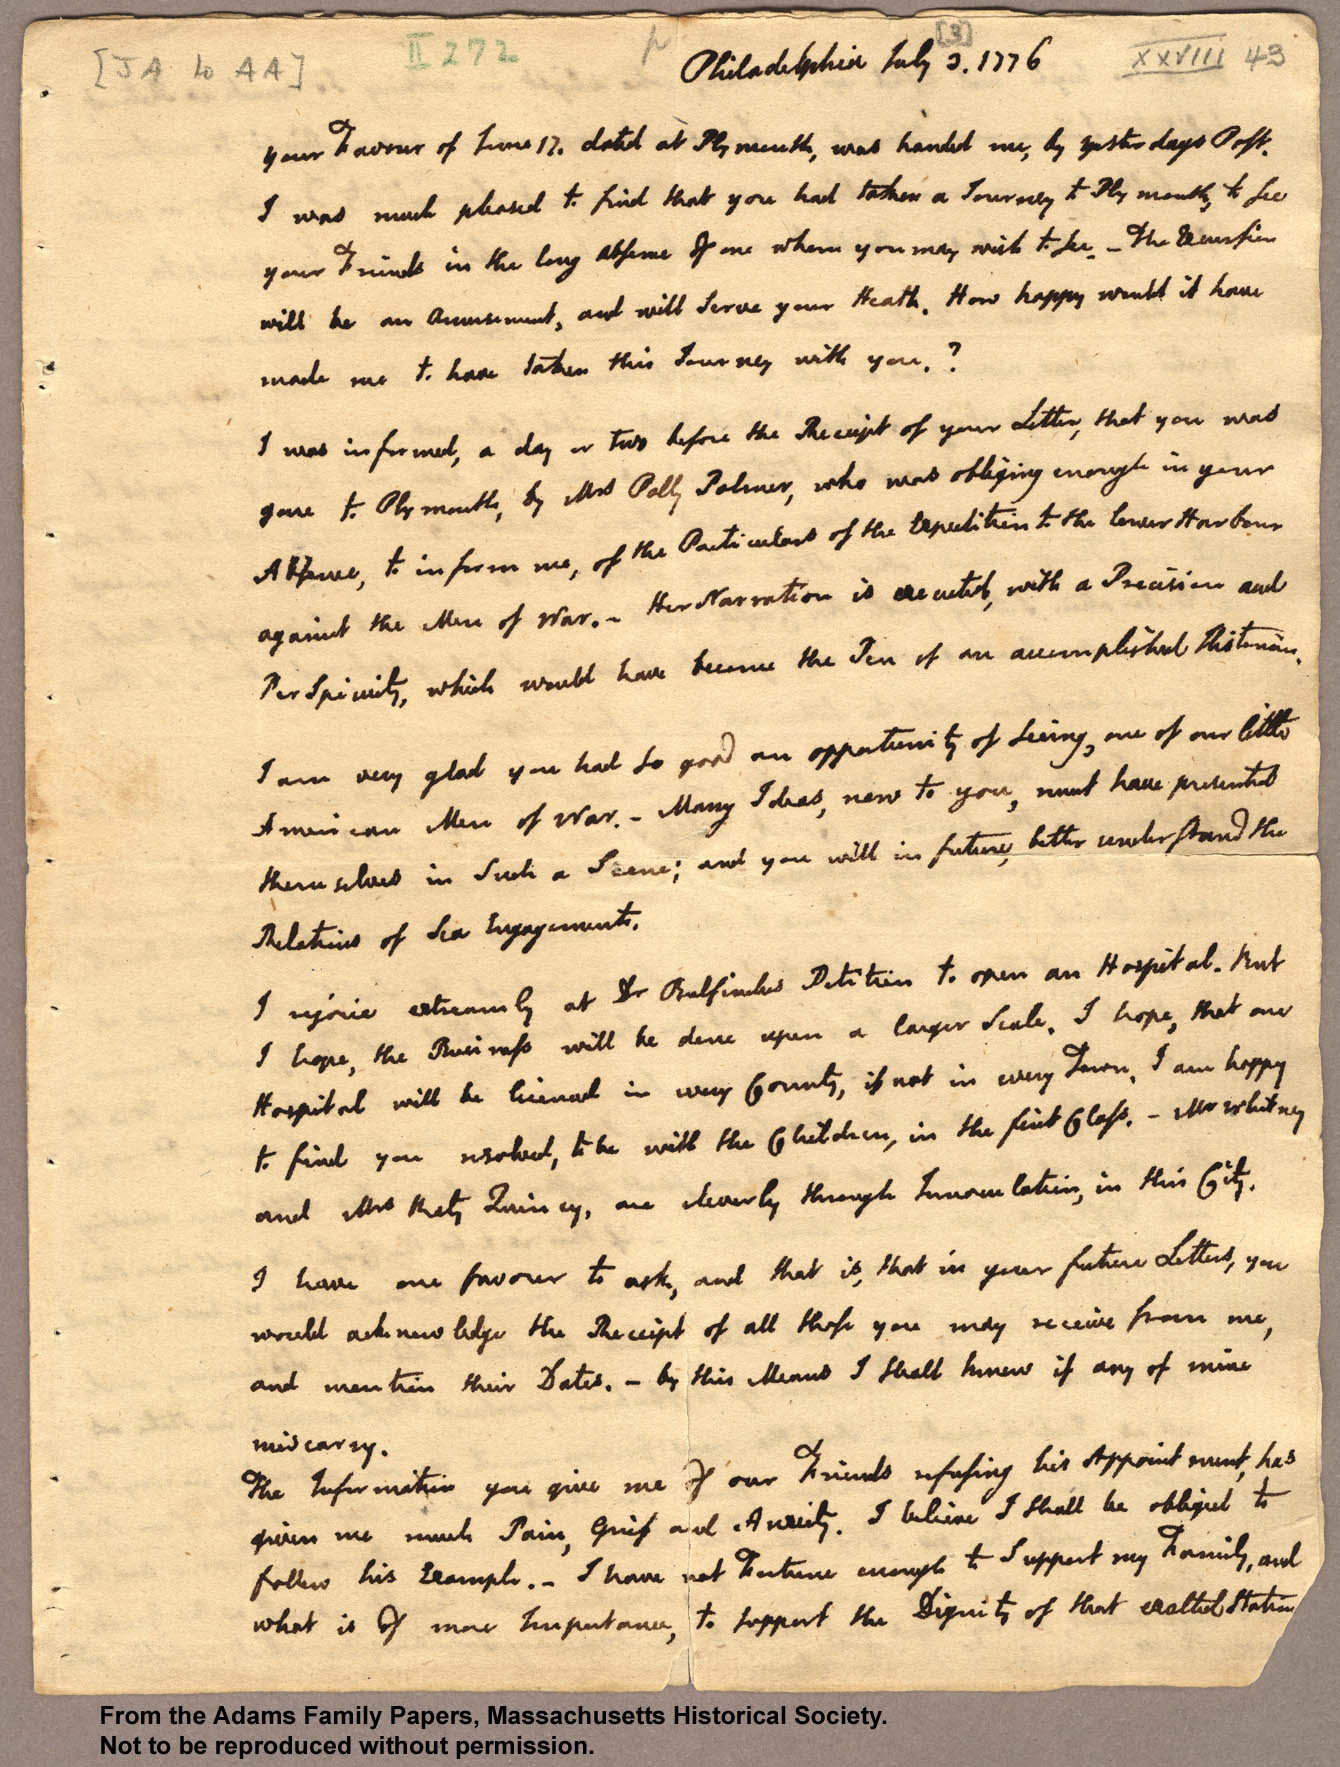 [JA to AA]
II 272
[3]
XXVIII 43
Philadelphia July 3. 1776
your Favour of June 17. dated at Plymouth, was handed me, by yesterdays Post.
I was much pleased to find that you had taken a Journey to Plymouth, to see
your Friends in the long absence of one whom you may wish to see. – The Excursion
will be an Amusement, and will serve your Heath. How happy would it have
made me to have taken this Journey with you.?
I was informed, a day or two before the Receipt of your Letter, that you was
gone to Plymouth, by Mrs Polly Palmer, who was obliging enough in your
Absence, to inform me, of the Particulars of the Expedition to the lower Harbour
against the Men of War. – Her Narration is executed, with a Precision and
Perspicuity, which would have become the Pen of an accomplished Historian.
I am very glad you had so good an opportunity of seeing, one of our little
American Men of War. – Many Ideas, new to you, must have presented
themselves in such a Scene; and you will in future, better understand the
Relations of Sea Engagements.
I rejoice extreamly at Dr Bulfinches Petition to open an Hospital. But
I hope, the Business will be done upon a larger Scale. I hope, that one
Hospital will be licensed in every County, if not in every Town. I am happy
to find you resolved, to be with the Children, in the first Class. – Mr Whitney
and Mrs Katy Quincy, are cleverly through Innoculation, in this City.
I have one favour to ask, and that is, that in your future Letters, you
would acknowledge the Receipt of all those you may receive from me,
and mention their Dates. – by this Means I shall know if any of mine
miscarry.
The Information you give me of our Friends refusing his Appointment, has
given me much Pain, Grief and Anxiety. I believe I shall be obliged to
follow his Example. – I have not Fortune enough to support my Family, and
what is of more Importance, to support the Dignity of that exalted Station
From the Adams Family Papers, Massachusetts Historical Society.
Not to be reproduced without permission.